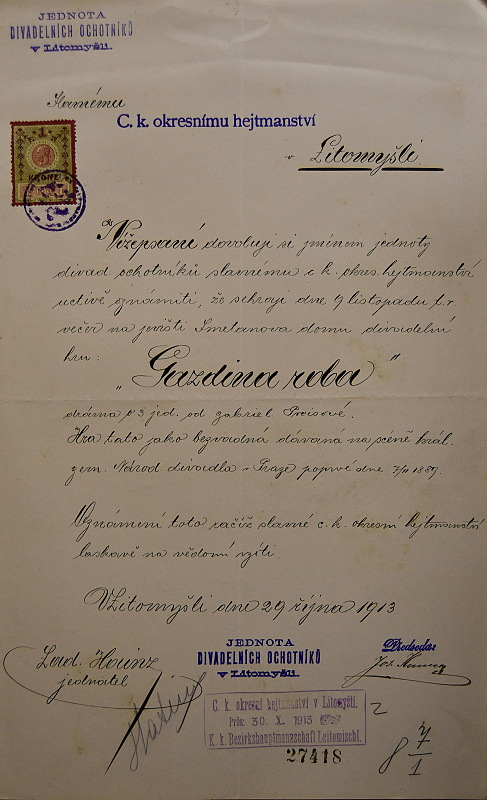 JEDNOTA
DIVADELNÍCH OCHOTNÍKŮ
v Litomyšli.
Slavnému
C. k. okresnímu hejtmanství
v Litomyšli
1
KRONE
Nížepsaní dovolují si jménem jednoty
divad ochotníků slavnému c. k. okres. hejtmanství
uctivě oznámiti, že sehrají dne 9 listopadu t. r.
večer na jevišti Smetanova domu divadelní
hru:
„Gazdina roba“
dráma o 3 jed. od Gabriel Preisové.
Hra tato jako bezvadná dávaná na scéně král.
zem. Národ divadla v Praze poprvé dne 7/11 1889.
Oznámení toto račiž slavné c. k. okresní hejtmanství
laskavě na vědomí vzíti.
V Litomyšli dne 29 října 1913
Lad. Heinz
jednatel
JEDNOTA
DIVADELNÍCH OCHOTNÍKŮ
v Litomyšli.
Předseda:
C. k. okresní hejtmanství v Litomyšli.
Prās: 30. X. 1913
K. k. Bezirkshauptmannschaft Leitomischl.
27418
2
8 7/1